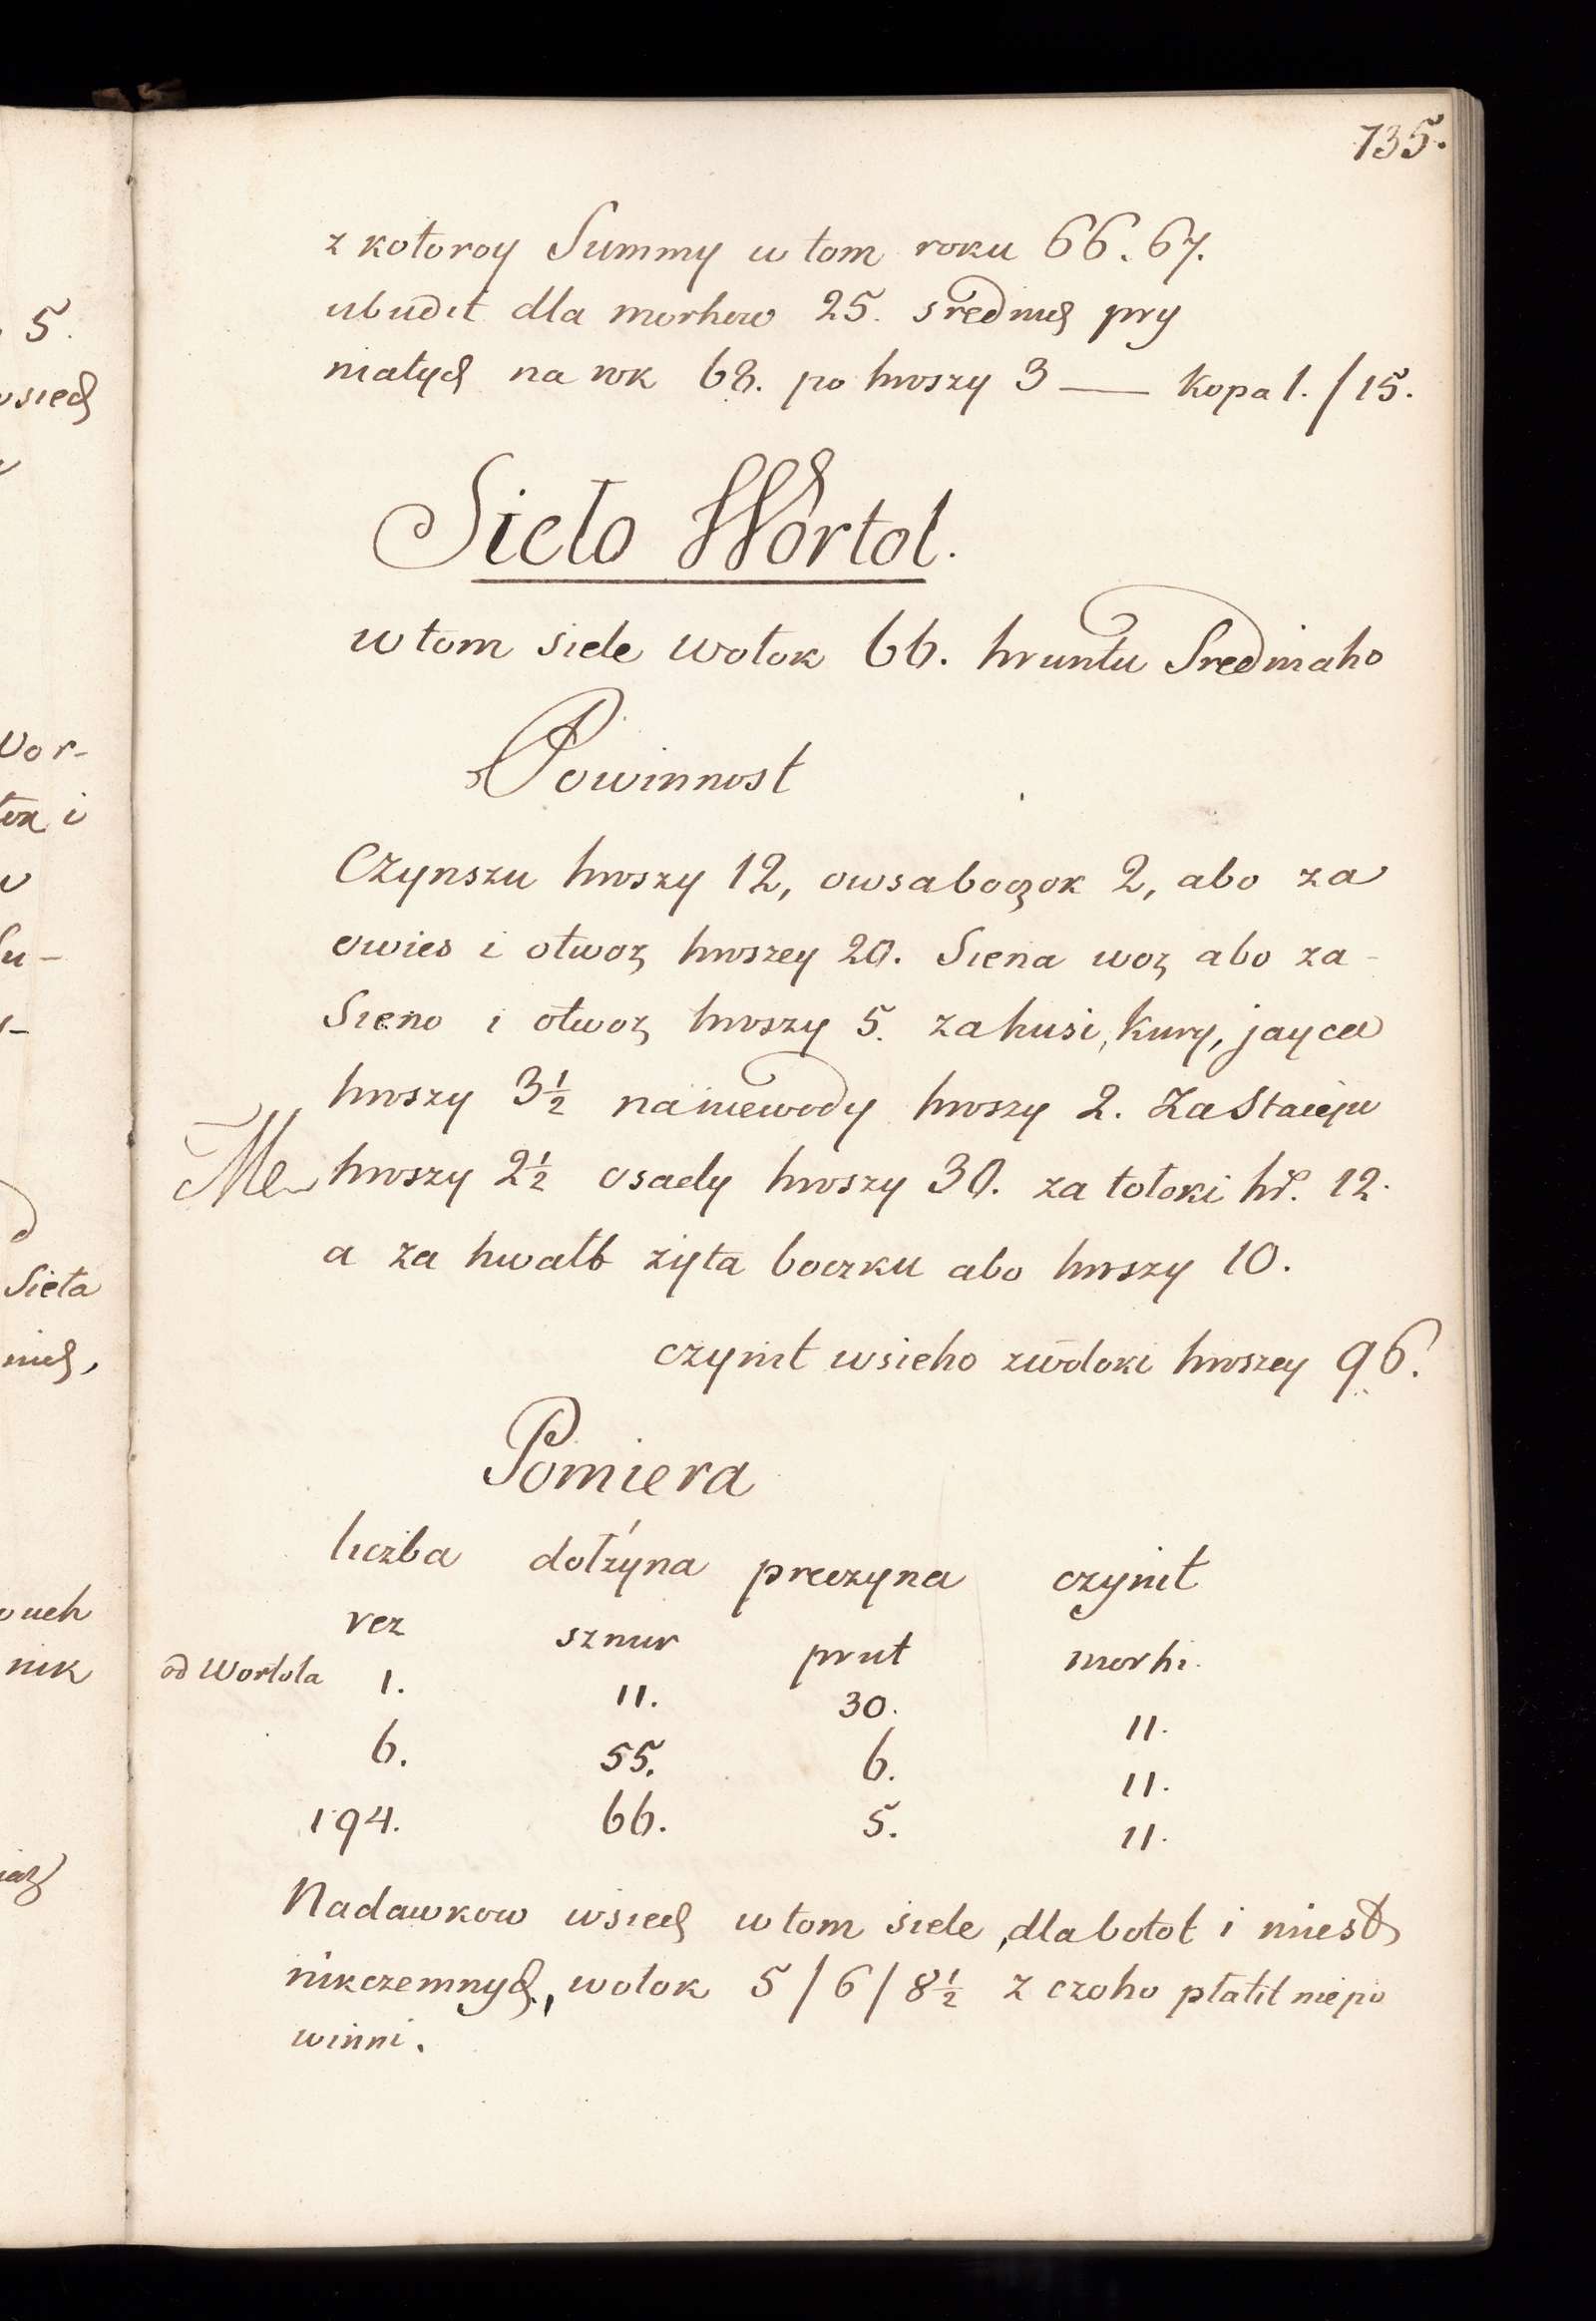 735.
z kotoroy Summy w tom roku 66. 67.
ubudit dla morhow 25. srednich pry
niatych na rok 68. po hroszy 3 — Kopa 1. / 15.
Sieło Wortol.
w tom siele wołok 66. hruntu Sredniaho
Powinnost
Czynszu hroszy 12, owsa boczok 2, abo za
owies i otwoz hroszey 20. Siena woz abo za-
Sieno i otwoz hroszy 5. za husi, kury, jayca
hroszy 3½ na niewody hroszy 2. Za Stacyju
hroszy 2½ osady hroszy 30. za tołoki hr. 12.
a za hwałt żyta boczku abo hroszy 10.
czynit wsieho z wołoki hroszey 96.
Pomiera
liczba dołżyna preczyna czynit
rez sznur prut morhi.
od Wortola 1. 11. 30. 11.
6. 55. 6. 11.
194. 66. 5. 11.
Nadawkow wsiech w tom siele, dla bołot i miest
nikczemnych, wołok 5 / 6 / 8½ z czoho płatit nie po
winni.
5.
Sieła
nik